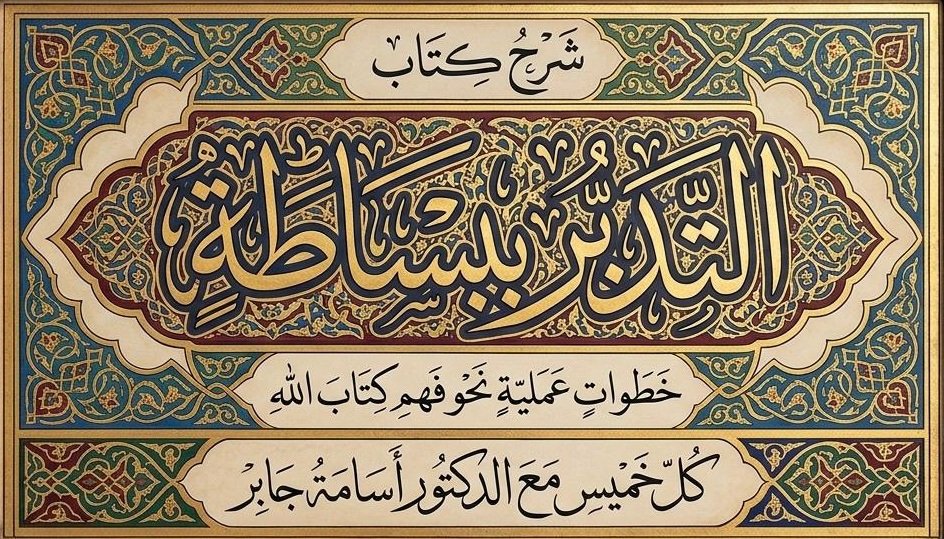 شَرْحُ كِتَاب
التَّدَبُّرُ بِبَسَاطَةٍ
خَطَواتٍ عَمَليّةٍ نَحْو فَهمِ كِتَابَ اللهِ
كُلّ خَمْيسِ مَعَ الدكتُور أُسَامَةُ جَابِرْ